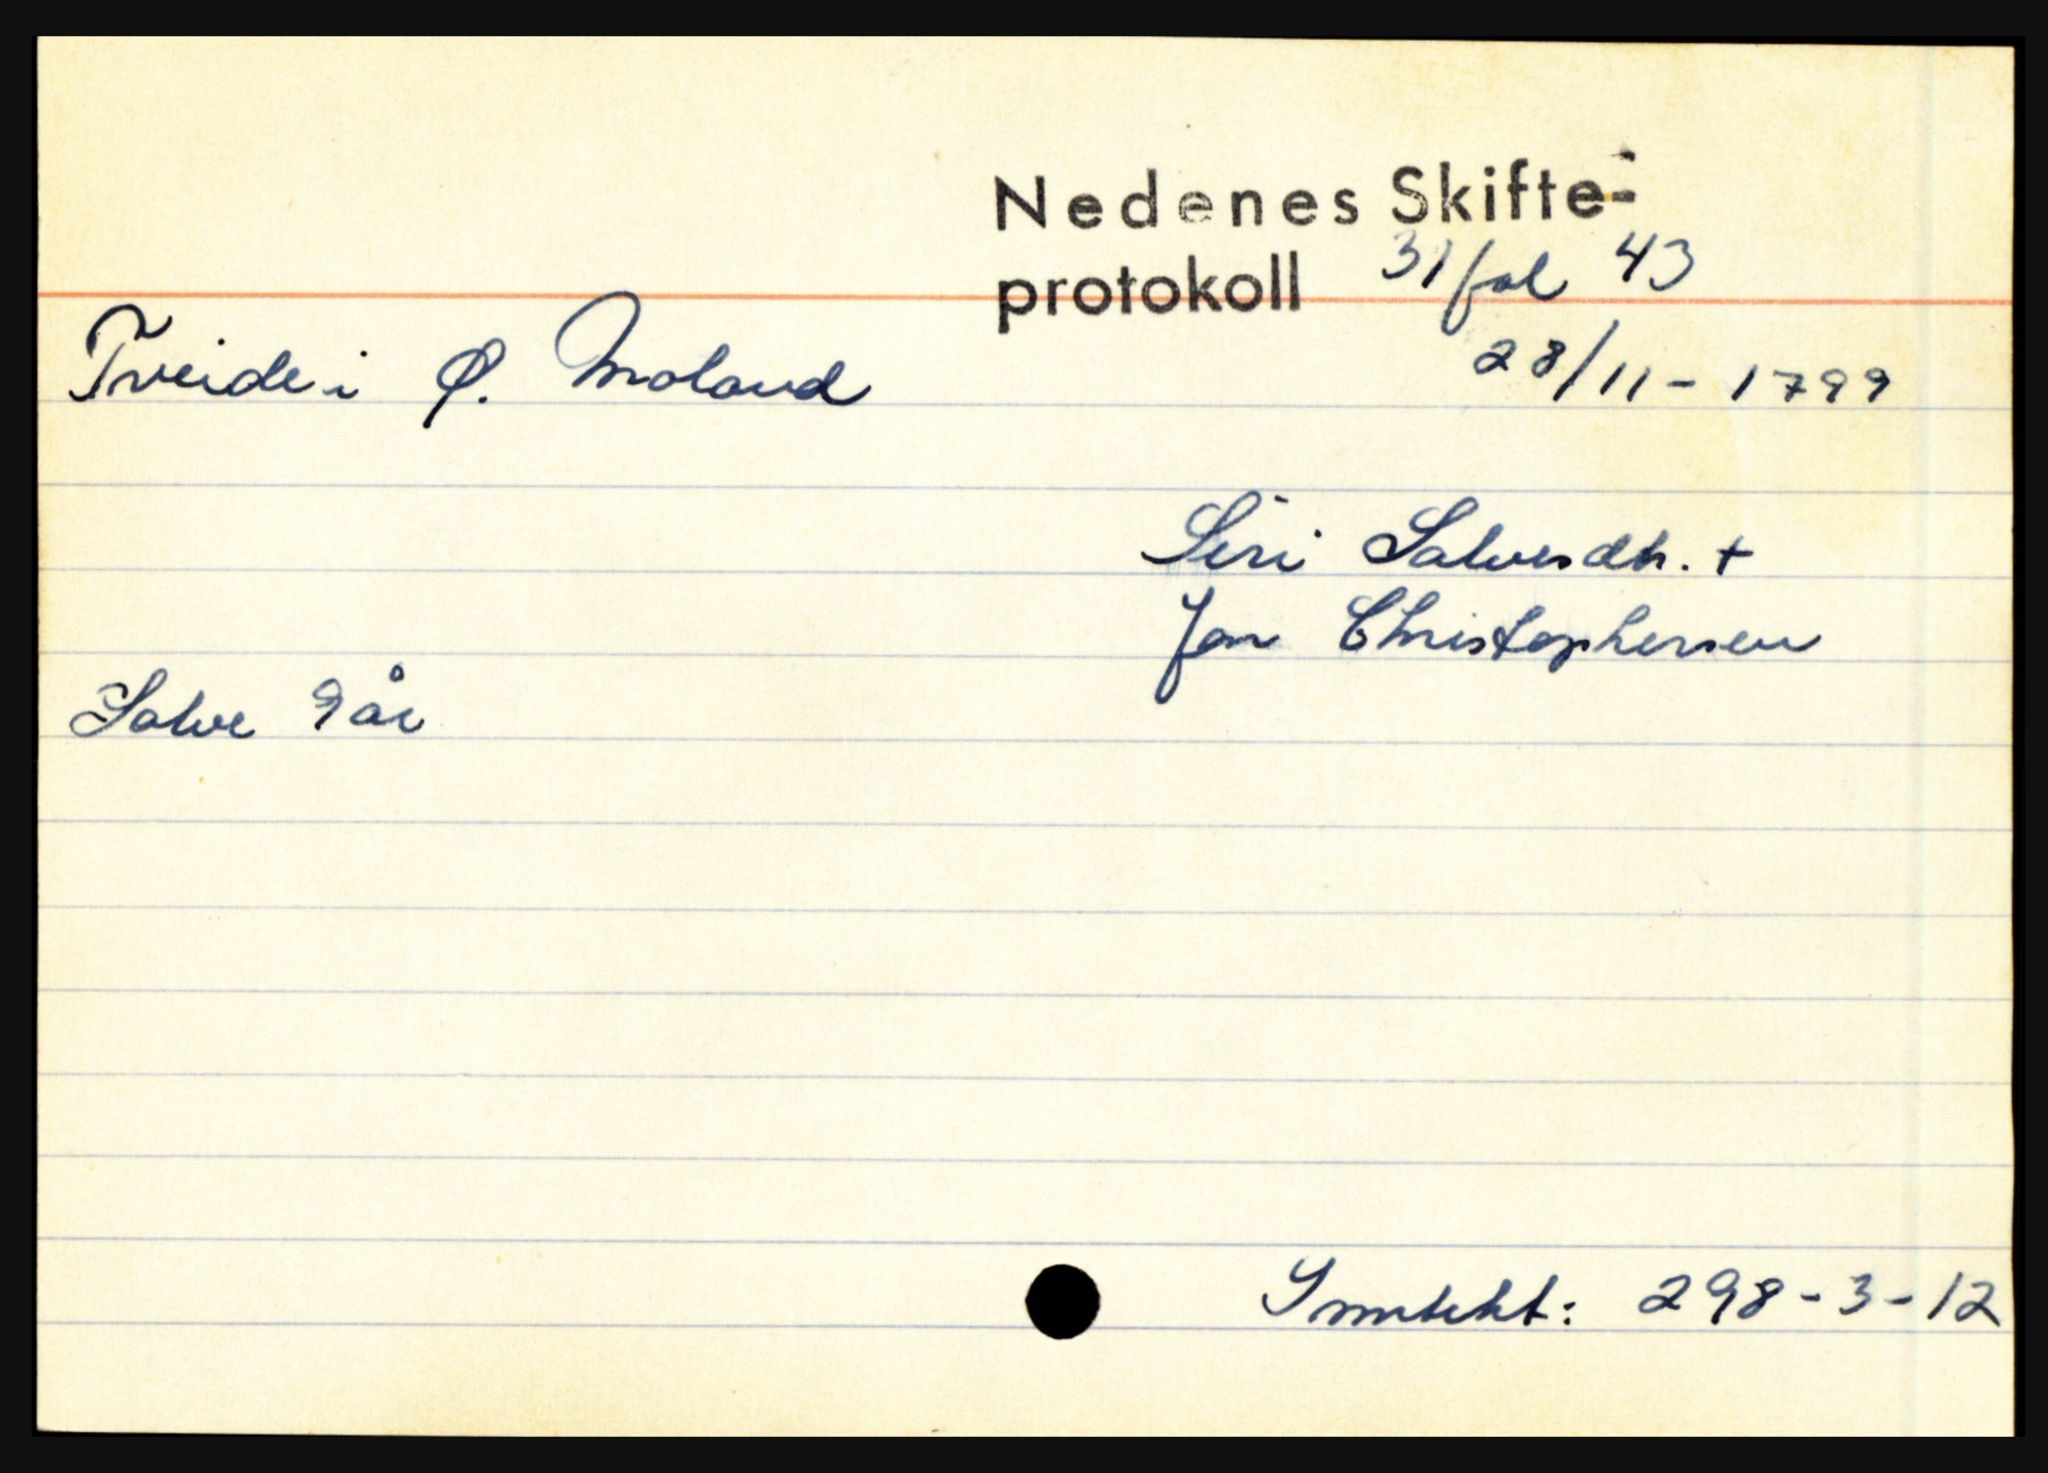 Nedenes Skifte-
protokoll 31 fol 43
Tveide i Ø. Moland
28/11-1799
Siri Salvesdtr. +
Jon Christophersen
Salve 9 år
Inntekt: 298-3-12